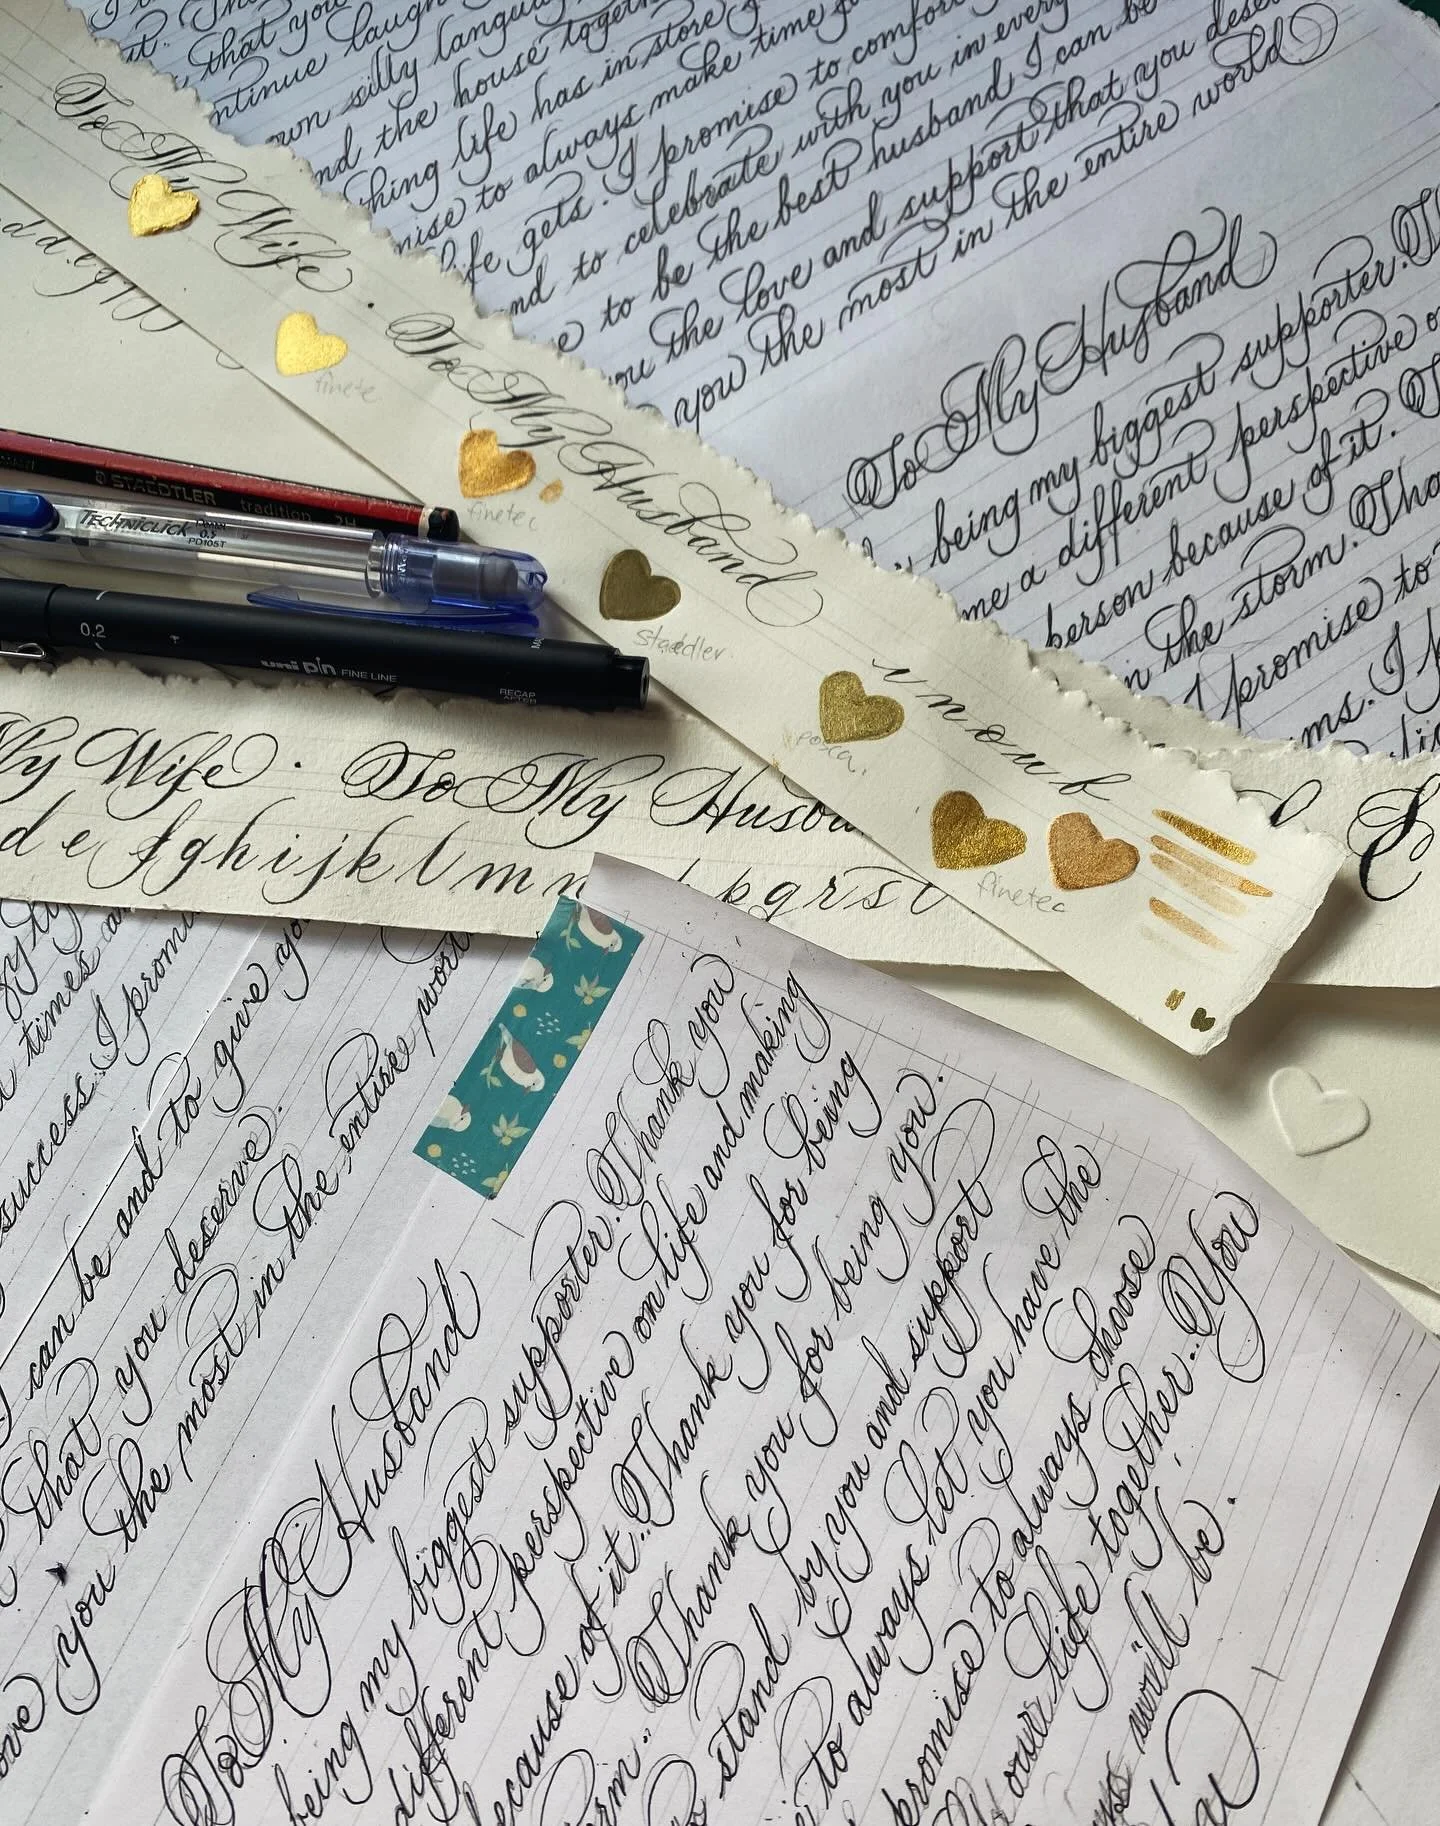 that you
continue laugh
own silly langua
and the house togeth
thing life has in store
mise to always make time
life gets. I promise to comfor
and to celebrate with you in every
to be the best husband I can be
you the love and support that you dese
you the most in the entire world
To My Wife · To My Husband
finete
finetec
Staedler
posca.
finetec
u n o u b
To My Husband
being my biggest supporter. Th
me a different perspective o
person because of it. T
in the storm. Tha
I promise to
ms. I p
STAEDTLER
tradition 2H
TECHNICLICK Pentel
0.5
PD105T
0.2
uni pin FINE LINE
RECAP
AFTER
My Wife · To My Husba
d e f g h i j k l m n p q r s t
times a
success. I promi
to give yo
I can be and
that you deserve.
ove you the most in the entire worl
To My Husband
being my biggest supporter. Thank you
different perspective on life and making
because of it. Thank you for being
orm. Thank you for being you.
stand by you and support
to always let you have the
promise to always choose
our life together. You
ys will be.